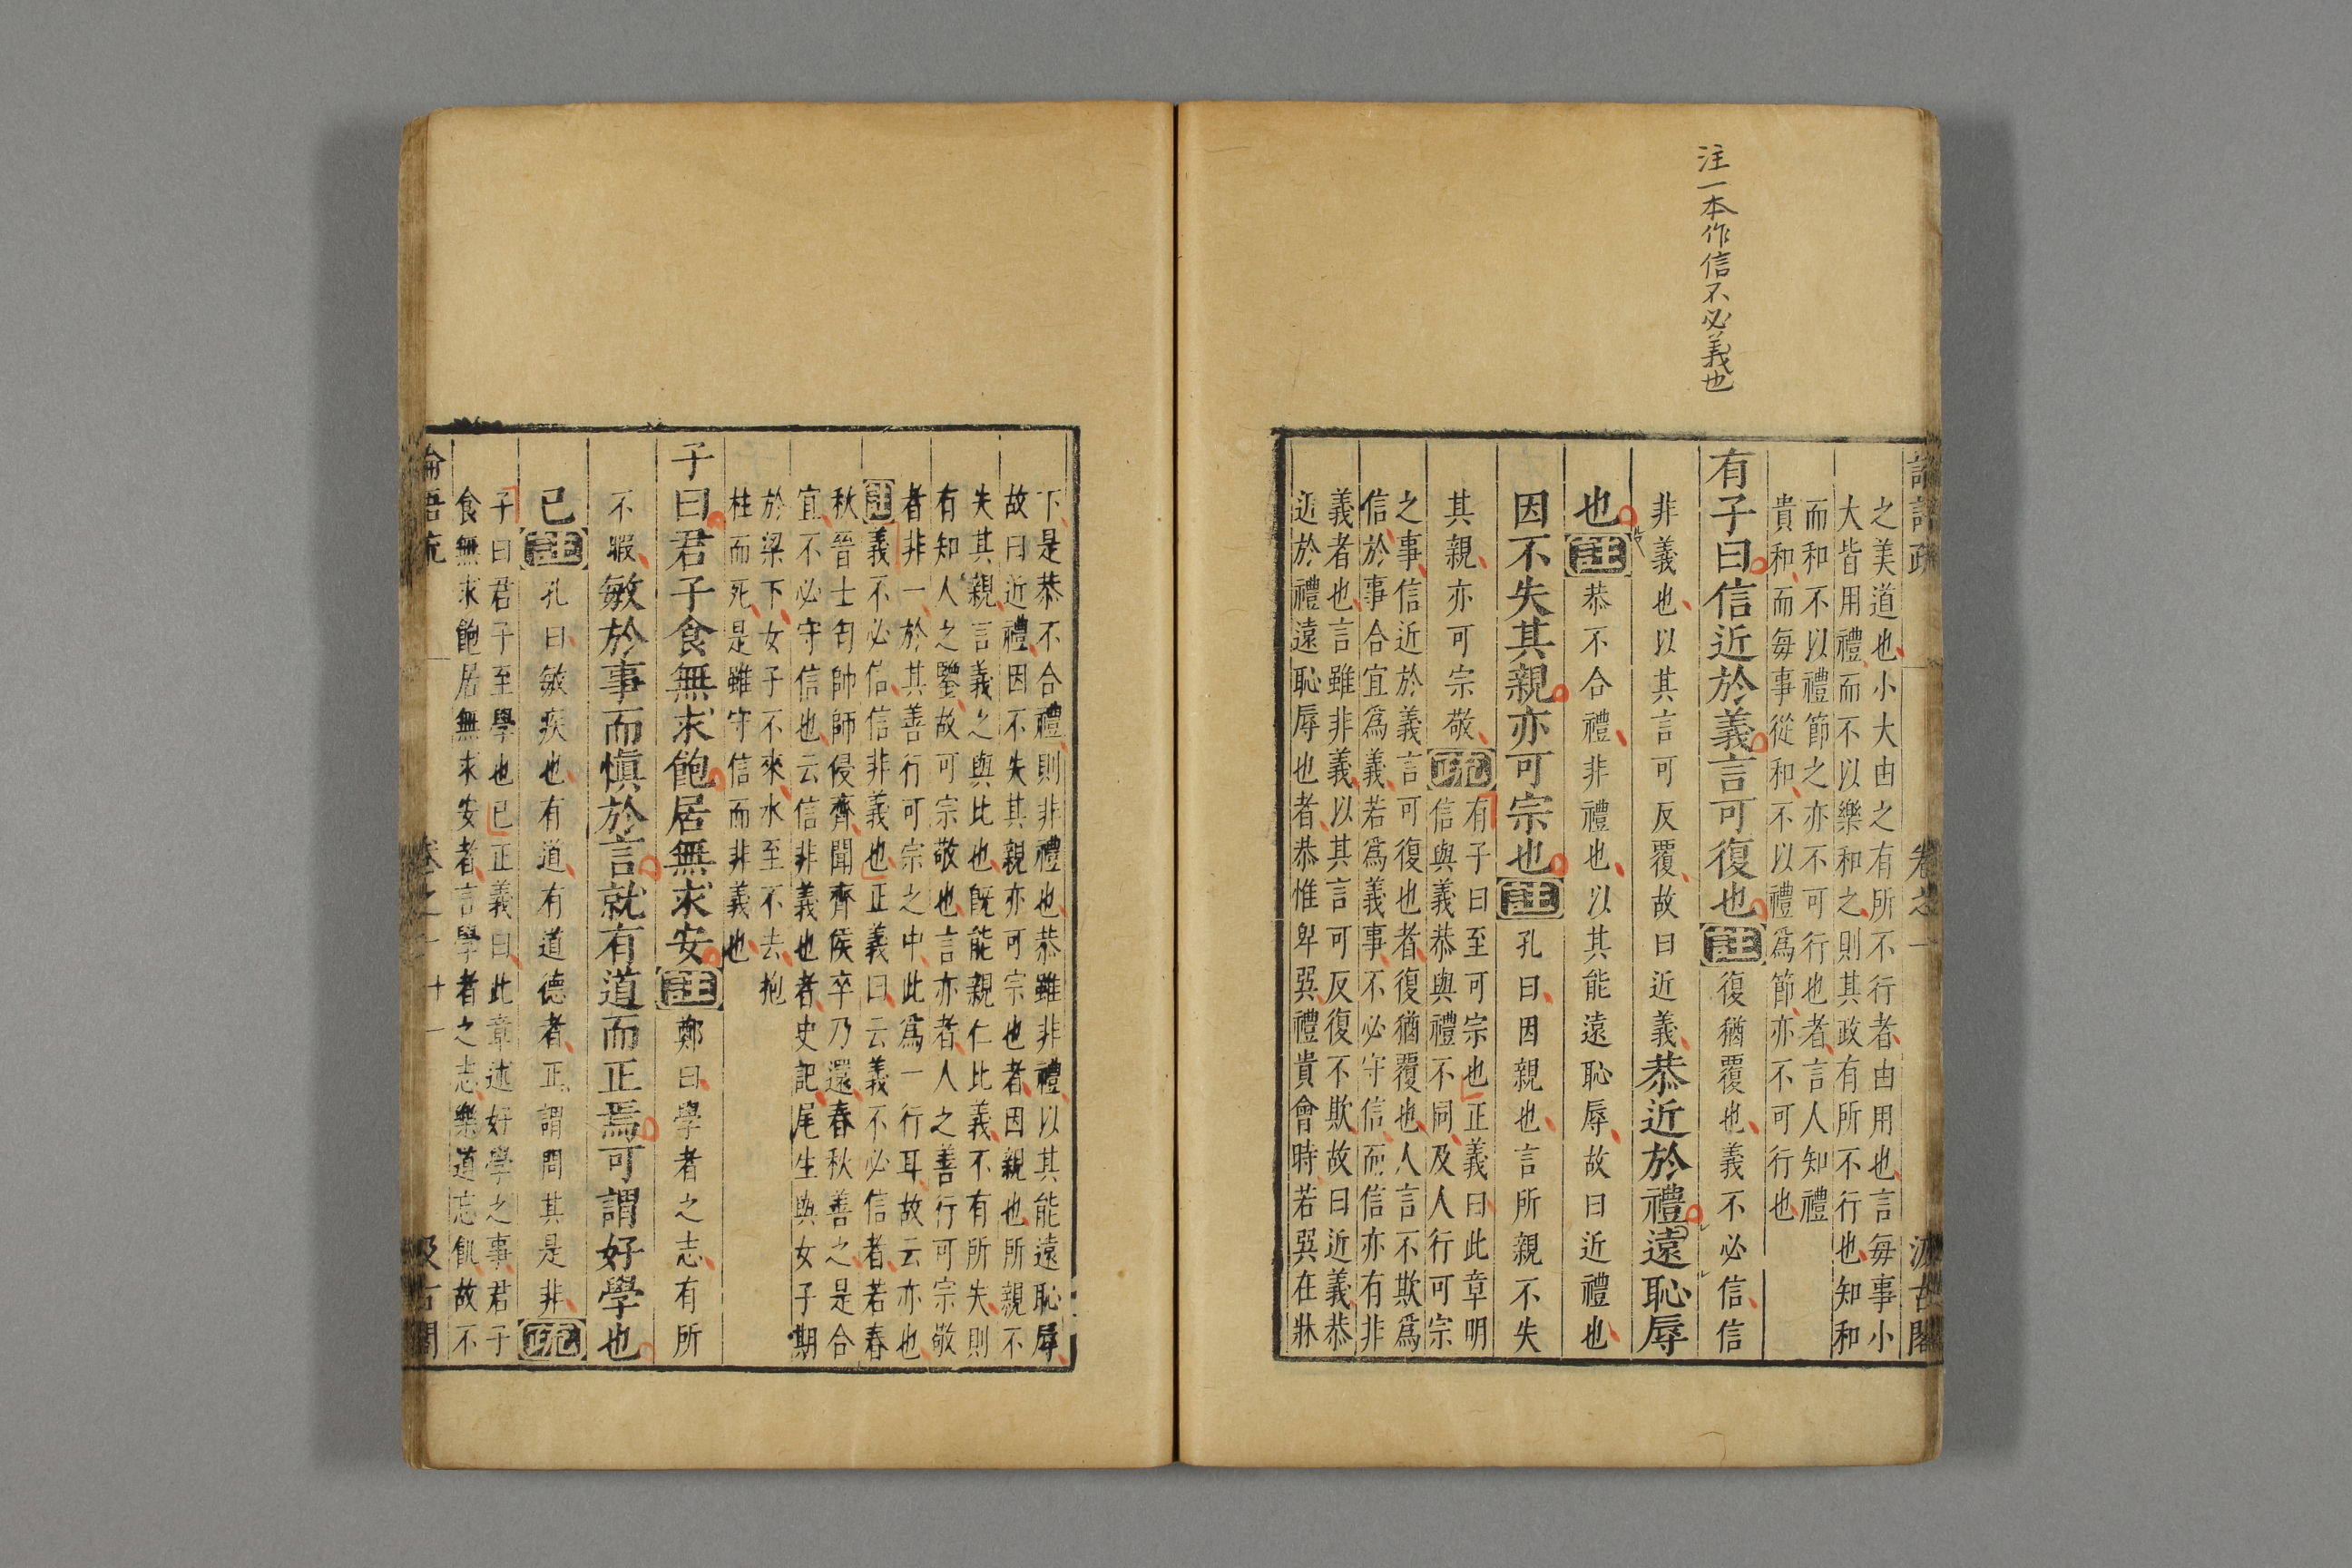 注一本作信不必義也
之美道也小大由之有所不行者由用也言每事小
大皆用禮而不以樂和之則其政有所不行也知和
而和不以禮節之亦不可行也者言人知禮
貴和而每事從和不以禮爲節亦不可行也
有子曰信近於義言可復也註復猶覆也義不必信信
非義也以其言可反覆故曰近義恭近於禮遠恥辱
也註恭不合禮非禮也以其能遠恥辱故曰近禮也
因不失其親亦可宗也註孔曰因親也言所親不失
其親亦可宗敬疏
有子曰至可宗也正義曰此章明
信與義恭與禮不同及人行可宗
之事信近於義言可復也者復猶覆也人言不欺爲
信於事合宜爲義若爲義事不必守信而信亦有非
義者也言雖非義以其言可反復不欺故曰近義恭
近於禮遠恥辱也者恭惟卑巽禮貴會時若巽在牀
下是恭不合禮則非禮也恭雖非禮以其能遠恥辱
故曰近禮因不失其親亦可宗也者因親也所親不
失其親言義之與比也旣能親仁比義不有所失則
有知人之鑒故可宗敬也言亦者人之善行可宗敬
者非一於其善行可宗之中此爲一行耳故云亦也
註義不必信信非義也正義曰云義不必信者若春
秋晉士匄帥師侵齊聞齊侯卒乃還春秋善之是合
宜不必守信也云信非義也者史記尾生與女子期
於梁下女子不來水至不去抱
柱而死是雖守信而非義也
子曰君子食無求飽居無求安註鄭曰學者之志有所
不暇敏於事而愼於言就有道而正焉可謂好學也
已註孔曰敏疾也有道有道德者正謂問其是非疏
子曰君子至學也已正義曰此章述好學之事君子
食無求飽居無求安者言學者之志樂道忘飢故不
論語疏 卷之一 十一 汲古閣